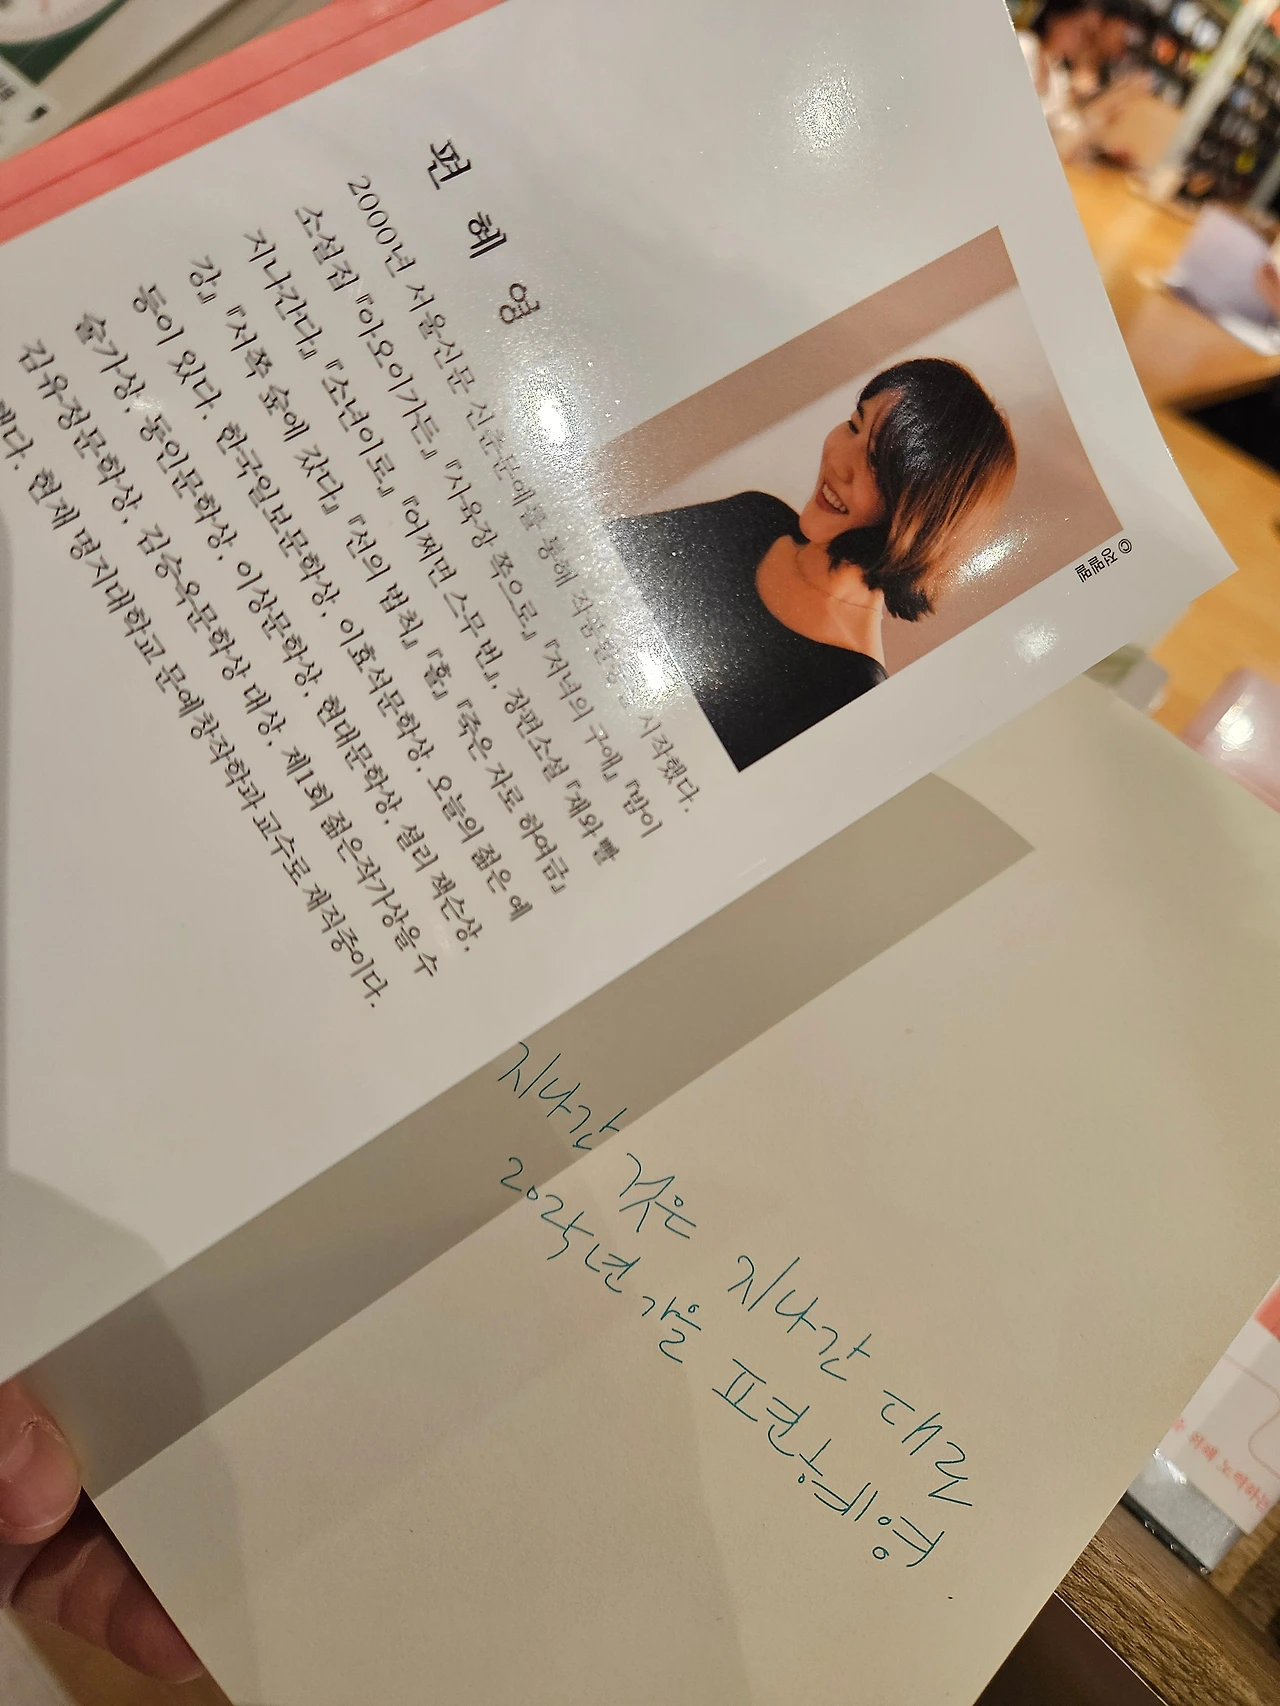 편혜영
2000년 서울신문 신춘문예를 통해 작품활동을 시작했다.
소설집 『아오이가든』 『사육장 쪽으로』 『저녁의 구애』 『밤이
지나간다』 『소년이로』 『어쩌면 스무 번』, 장편소설 『재와 빨
강』 『서쪽 숲에 갔다』 『선의 법칙』 『홀』 『죽은 자로 하여금』
등이 있다. 한국일보문학상, 이효석문학상, 오늘의 젊은 예
술가상, 동인문학상, 이상문학상, 현대문학상, 셜리 잭슨상,
김유정문학상, 김승옥문학상 대상, 제1회 젊은작가상을 수
했다. 현재 명지대학교 문예창작학과 교수로 재직중이다.
© 정멜멜
지나간 것은 지나간 대로
2025년 가을 편혜영
위해 노력하는